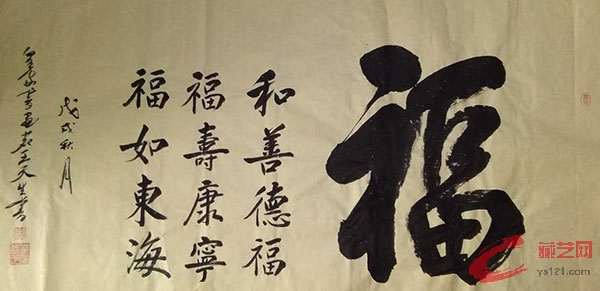 福
和善德福
福壽康寧
福如東海
戊戌秋月
王天生書
藏艺网
ys121.com